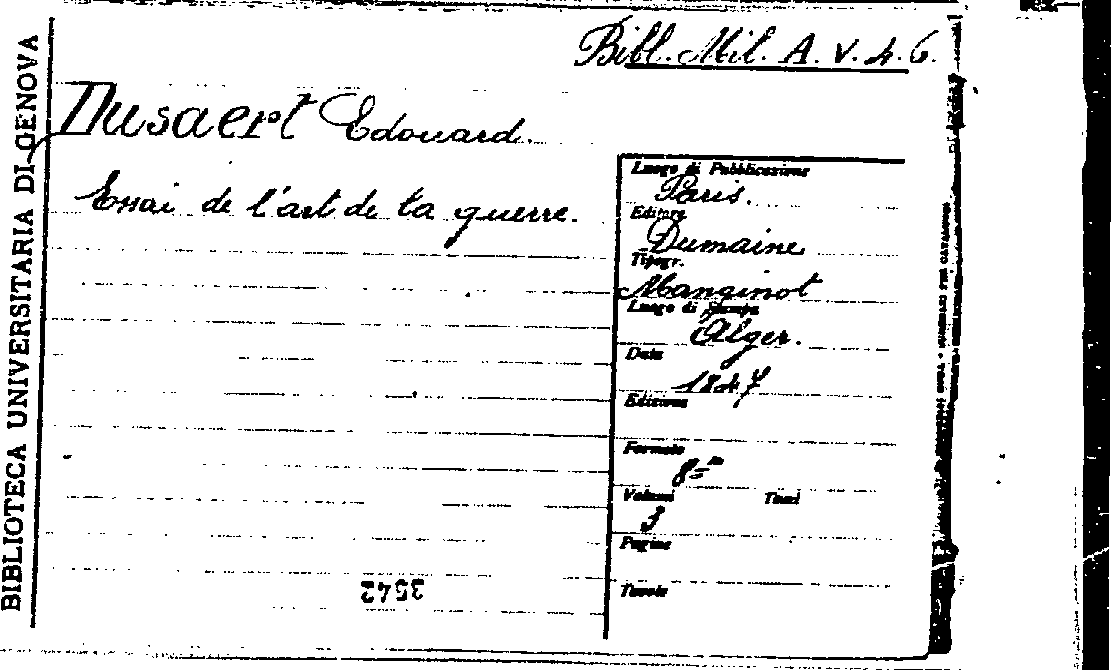 BIBLIOTECA UNIVERSITARIA DI GENOVA
Bibl. Mil. A. V. 4. 6.
Dusaert Edouard.
Essai de l'art de la guerre.
Luogo di Pubblicazione
Paris.
Editore
Dumaine
Tipogr.
Manginot
Luogo di Stampa
Alger.
Data
1847
Edizione
Formato
8=°
Volumi Tomi
3
Pagine
Tavole
3542